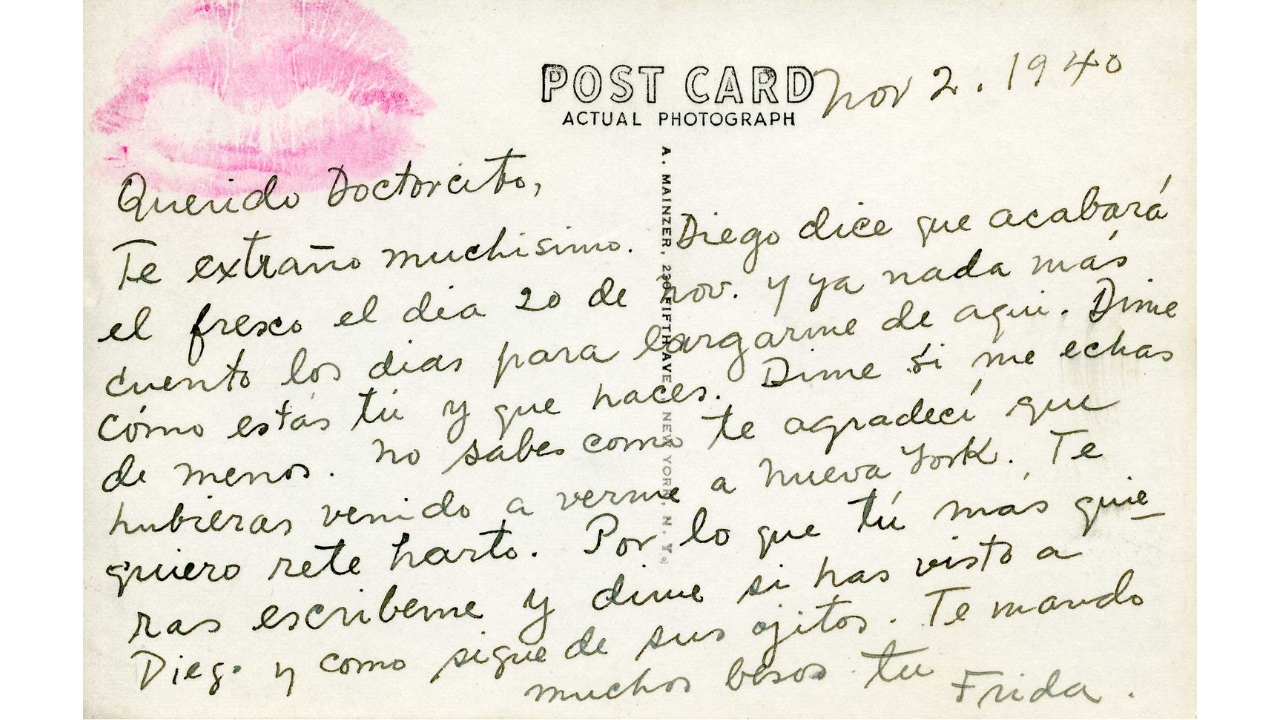 POST CARD
ACTUAL PHOTOGRAPH
Nov 2. 1940
A. MAINZER, 230 FIFTH AVE NEW YORK, N. Y.
Querido Doctorcito,
Te extraño muchisimo. Diego dice que acabará
el fresco el dia 20 de nov. y ya nada más
cuento los dias para largarme de aqui. Dime
cómo estás tú y que haces. Dime si me echas
de menos. No sabes como te agradecí que
hubieras venido a verme a Nueva York. Te
quiero rete harto. Por lo que tú más quie_
ras escribeme y dime si has visto a
Diego y como sigue de sus ojitos. Te mando
muchos besos tu Frida.